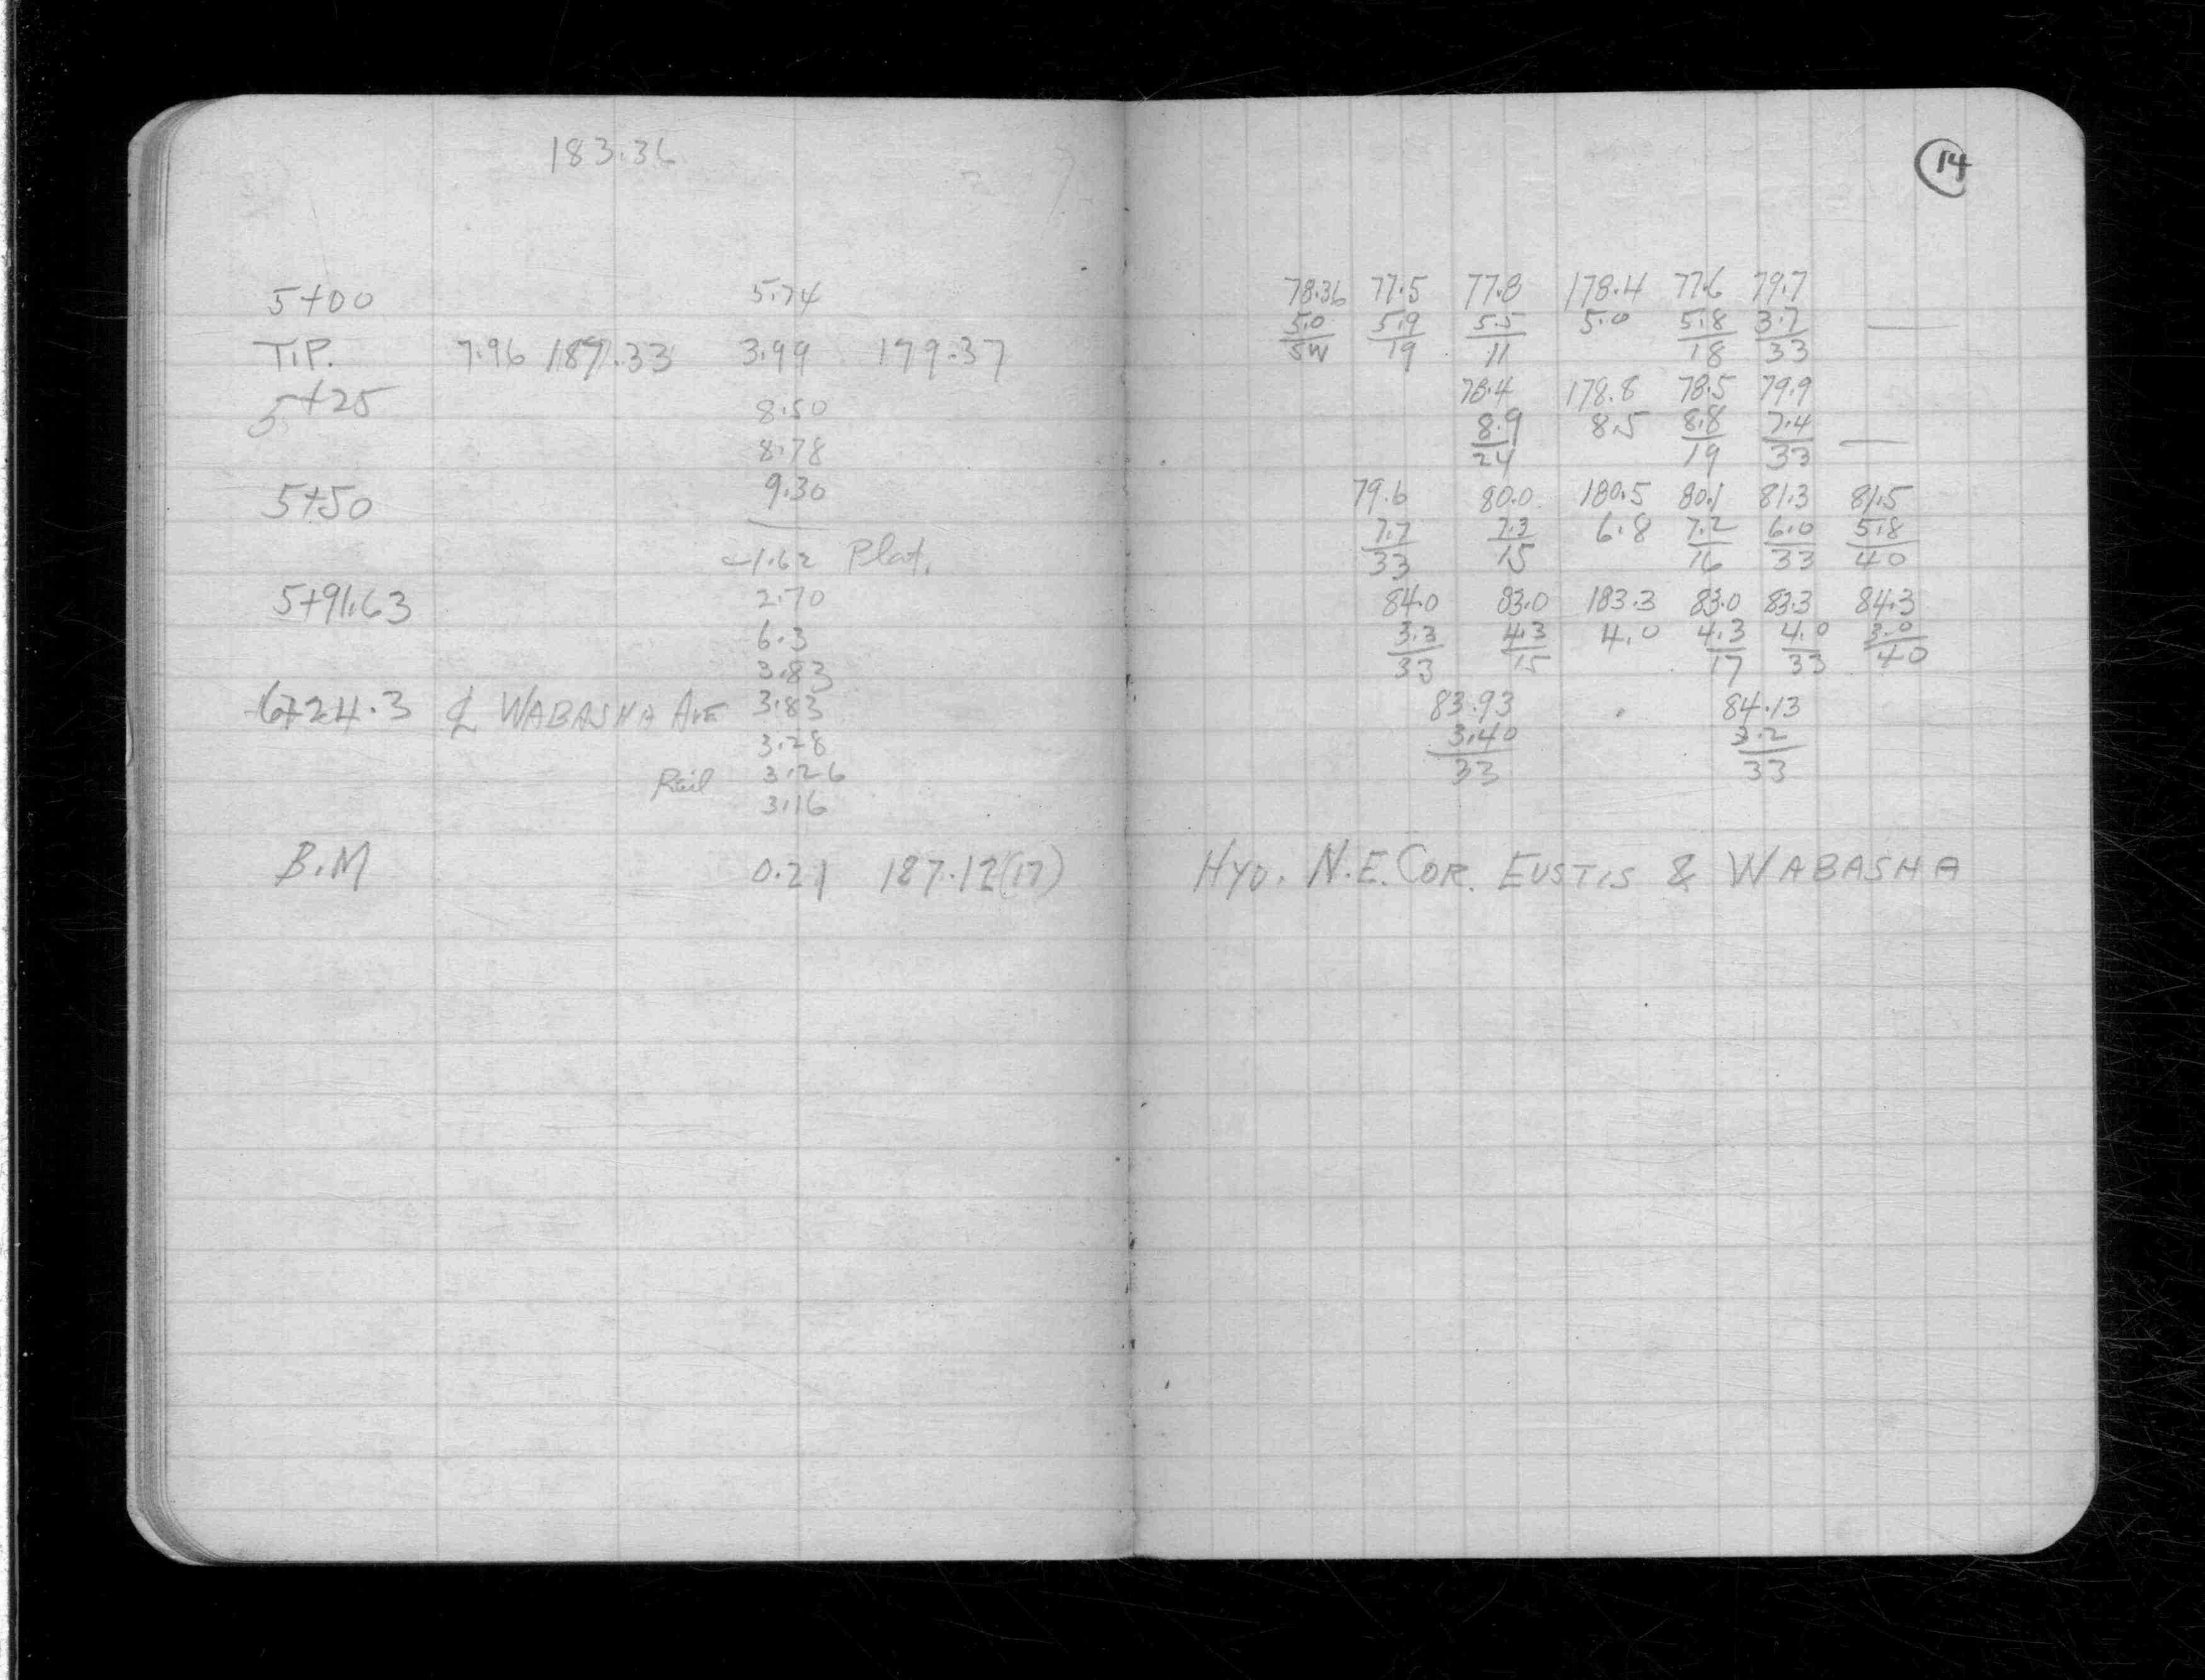 183.36
5+00 5.74
T.P. 7.96 187.33 3.99 179.37
5+25 8.50
8.78
5+50 9.30
-1.62 Plat.
5+91.63 2.70
6.3
3.83
6+24.3 ℄ WABASHA AVE 3.83
3.28
Rail 3.26
3.16
B.M 0.21 187.12(17)
14
78.36 77.5 77.8 178.4 77.6 79.7
5.0 5.9 5.5 5.0 5.8 3.7
5W 19 11 18 33
78.4 178.8 78.5 79.9
8.9 8.5 8.8 7.4
24 19 33
79.6 80.0 180.5 80.1 81.3 81.5
7.7 7.3 6.8 7.2 6.0 5.8
33 15 16 33 40
84.0 83.0 183.3 83.0 83.3 84.3
3.3 4.3 4.0 4.3 4.0 3.0
33 15 17 33 40
83.93 84.13
3.40 3.2
33 33
HYD. N.E. COR. EUSTIS & WABASHA